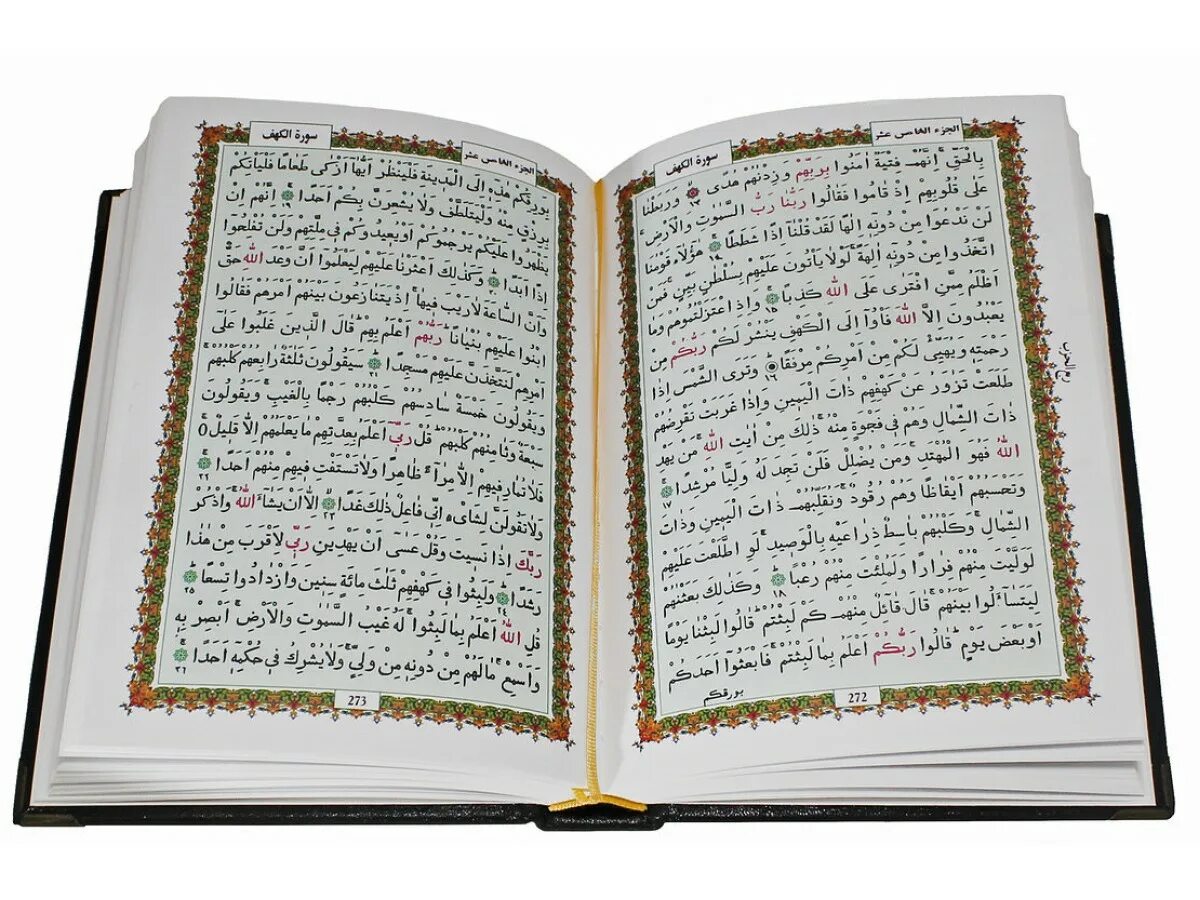 الجزء الخامس عشر
سورة الكهف
بِالْحَقِّ اِنَّهُمْ فِتْيَةٌ اٰمَنُوا بِرَبِّهِمْ وَزِدْنٰهُمْ هُدًى ١٣ وَرَبَطْنَا
عَلٰى قُلُوبِهِمْ اِذْ قَامُوا فَقَالُوا رَبُّنَا رَبُّ السَّمٰوٰتِ وَالْاَرْضِ
لَنْ نَدْعُوَا مِنْ دُونِهٖٓ اِلٰهًا لَقَدْ قُلْنَٓا اِذًا شَطَطًا ١٤ هٰٓؤُ۬لَٓاءِ قَوْمُنَا
اتَّخَذُوا مِنْ دُونِهٖٓ اٰلِهَةً لَوْلَا يَأْتُونَ عَلَيْهِمْ بِسُلْطَانٍ بَيِّنٍ فَمَنْ
اَظْلَمُ مِمَّنِ افْتَرٰى عَلَى اللّٰهِ كَذِبًا ١٥ وَاِذِ اعْتَزَلْتُمُوهُمْ وَمَا
يَعْبُدُونَ اِلَّا اللّٰهَ فَأْوُٓا اِلَى الْكَهْفِ يَنْشُرْ لَكُمْ رَبُّكُمْ مِنْ
رَحْمَتِهٖ وَيُهَيِّئْ لَكُمْ مِنْ اَمْرِكُمْ مِرْفَقًا ١٦ وَتَرَى الشَّمْسَ اِذَا
طَلَعَتْ تَزٰوَرُ عَنْ كَهْفِهِمْ ذَاتَ الْيَمٖينِ وَاِذَا غَرَبَتْ تَقْرِضُهُمْ
ذَاتَ الشِّمَالِ وَهُمْ فٖي فَجْوَةٍ مِنْهُ ذٰلِكَ مِنْ اٰيَاتِ اللّٰهِ مَنْ يَهْدِ
اللّٰهُ فَهُوَ الْمُهْتَدِ وَمَنْ يُضْلِلْ فَلَنْ تَجِدَ لَهُ وَلِيًّا مُرْشِدًا ١٧
وَتَحْسَبُهُمْ اَيْقَاظًا وَهُمْ رُقُودٌ وَنُقَلِّبُهُمْ ذَاتَ الْيَمٖينِ وَذَاتَ
الشِّمَالِ وَكَلْبُهُمْ بَاسِطٌ ذِرَاعَيْهِ بِالْوَصٖيدِ لَوِ اطَّلَعْتَ عَلَيْهِمْ
لَوَلَّيْتَ مِنْهُمْ فِرَارًا وَلَمُلِئْتَ مِنْهُمْ رُعْبًا ١٨ وَكَذٰلِكَ بَعَثْنَاهُمْ
لِيَتَسَٓاءَلُوا بَيْنَهُمْ قَالَ قَٓائِلٌ مِنْهُمْ كَمْ لَبِثْتُمْ قَالُوا لَبِثْنَا يَوْمًا
اَوْ بَعْضَ يَوْمٍ قَالُوا رَبُّكُمْ اَعْلَمُ بِمَا لَبِثْتُمْ فَابْعَثُٓوا اَحَدَكُمْ
بورقكم
272
الجزء الخامس عشر
سورة الكهف
بِوَرِقِكُمْ هٰذِهٖٓ اِلَى الْمَدٖينَةِ فَلْيَنْظُرْ اَيُّهَٓا اَزْكٰى طَعَامًا فَلْيَأْتِكُمْ
بِرِزْقٍ مِنْهُ وَلْيَتَلَطَّفْ وَلَا يُشْعِرَنَّ بِكُمْ اَحَدًا ١٩ اِنَّهُمْ اِنْ
يَظْهَرُوا عَلَيْكُمْ يَرْجُمُوكُمْ اَوْ يُعٖيدُوكُمْ فٖي مِلَّتِهِمْ وَلَنْ تُفْلِحُٓوا
اِذًا اَبَدًا ٢٠ وَكَذٰلِكَ اَعْثَرْنَا عَلَيْهِمْ لِيَعْلَمُٓوا اَنَّ وَعْدَ اللّٰهِ حَقٌّ
وَاَنَّ السَّاعَةَ لَا رَيْبَ فٖيهَا اِذْ يَتَنَازَعُونَ بَيْنَهُمْ اَمْرَهُمْ فَقَالُوا
ابْنُوا عَلَيْهِمْ بُنْيَانًا رَبُّهُمْ اَعْلَمُ بِهِمْ قَالَ الَّذٖينَ غَلَبُوا عَلٰٓى
اَمْرِهِمْ لَنَتَّخِذَنَّ عَلَيْهِمْ مَسْجِدًا ٢١ سَيَقُولُونَ ثَلٰثَةٌ رَابِعُهُمْ كَلْبُهُمْ
وَيَقُولُونَ خَمْسَةٌ سَادِسُهُمْ كَلْبُهُمْ رَجْمًا بِالْغَيْبِ وَيَقُولُونَ
سَبْعَةٌ وَثَامِنُهُمْ كَلْبُهُمْ قُلْ رَبّٖٓي اَعْلَمُ بِعِدَّتِهِمْ مَا يَعْلَمُهُمْ اِلَّا قَلٖيلٌ
فَلَا تُمَارِ فٖيهِمْ اِلَّا مِرَٓاءً ظَاهِرًا وَلَا تَسْتَفْتِ فٖيهِمْ مِنْهُمْ اَحَدًا ٢٢
وَلَا تَقُولَنَّ لِشَايْءٍ اِنّٖي فَاعِلٌ ذٰلِكَ غَدًا ٢٣ اِلَّٓا اَنْ يَشَٓاءَ اللّٰهُ وَاذْكُرْ
رَبَّكَ اِذَا نَسٖيتَ وَقُلْ عَسٰٓى اَنْ يَهْدِيَنِ رَبّٖي لِاَقْرَبَ مِنْ هٰذَا
رَشَدًا ٢٤ وَلَبِثُوا فٖي كَهْفِهِمْ ثَلٰثَ مِائَةٍ سِنٖينَ وَازْدَادُوا تِسْعًا ٢٥
قُلِ اللّٰهُ اَعْلَمُ بِمَا لَبِثُوا لَهُ غَيْبُ السَّمٰوٰتِ وَالْاَرْضِ اَبْصِرْ بِهٖ
وَاَسْمِعْ مَا لَهُمْ مِنْ دُونِهٖ مِنْ وَلِيٍّ وَلَا يُشْرِكُ فٖي حُكْمِهٖٓ اَحَدًا ٢٦
273